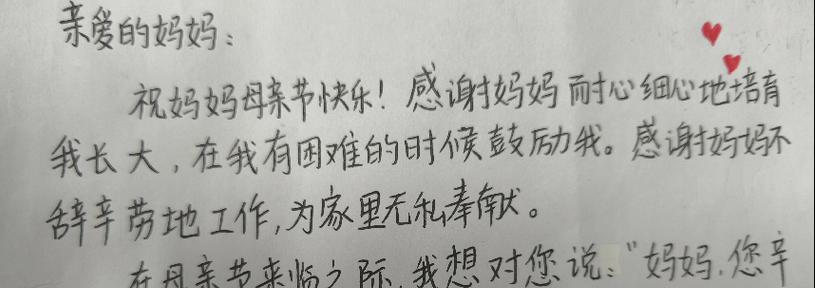 亲爱的妈妈：
祝妈妈母亲节快乐！感谢妈妈耐心细心地培育
我长大，在我有困难的时候鼓励我。感谢妈妈不
辞辛劳地工作，为家里无私奉献。
在母亲节来临之际，我想对您说：“妈妈，您辛